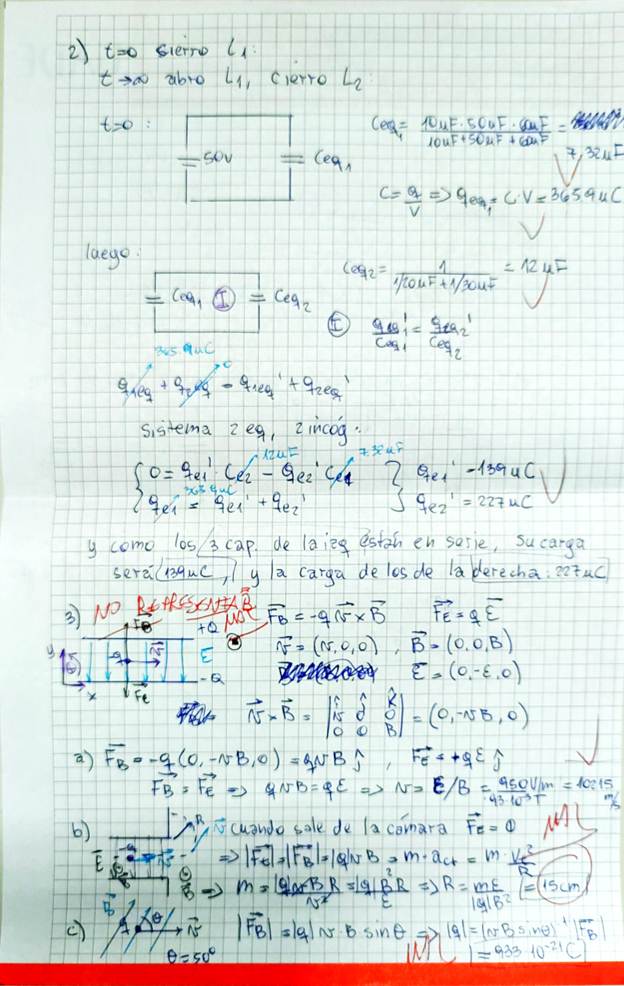 2) t=0 sierro L1:
t→∞ abro L1, cierro L2
t=0 :
50V
Ceq1
Ceq1 = 10uF·50uF·60uF / 10uF+50uF+60uF =
7,32uF
C = q/V => qeq1 = C·V = 365,9uC
luego:
Ceq1 (I) Ceq2
Ceq2 = 1 / 1/20uF+1/30uF = 12uF
(I) qeq1'/Ceq1 = qeq2'/Ceq2
365,9uC 0
q1eq + q2eq = q1eq' + q2eq'
Sistema 2 eq, 2 incóg.
12uF 7,32uF
0 = qe1' Ce2 - qe2' Ce1 qe1' = 139uC
365,9uC
qe1 = qe1' + qe2' qe2' = 227uC
y como los 3 cap. de la izq están en serie, su carga
será 139uC, y la carga de los de la derecha: 227uC
3) NO REPRESENTA B
MAL
FB +Q
y x E -Q Fe
FB = -q v x B Fe = q E
v = (v,0,0), B = (0,0,B)
E = (0,-E,0)
v x B = | i j k / v 0 0 / 0 0 B | = (0,-vB,0)
a) FB = -q(0,-vB,0) = qvB j, Fe = +qE j
FB = Fe => qvB = qE => v = E/B = 950V/m / 93·10⁻³T = 10215 m/s
b) R v cuando sale de la cámara Fe = 0 MAL
E B => |Fe| = |FB| = |q|vB = m·act = m·v²/R
=> m = |q|vBR/v² = |q|B²R/E => R = mE/|q|B² = 15cm
c) B q θ v |FB| = |q| v·B sinθ => |q| = (vB sinθ)⁻¹ |FB|
θ = 50° MAL = 933·10⁻²¹ C